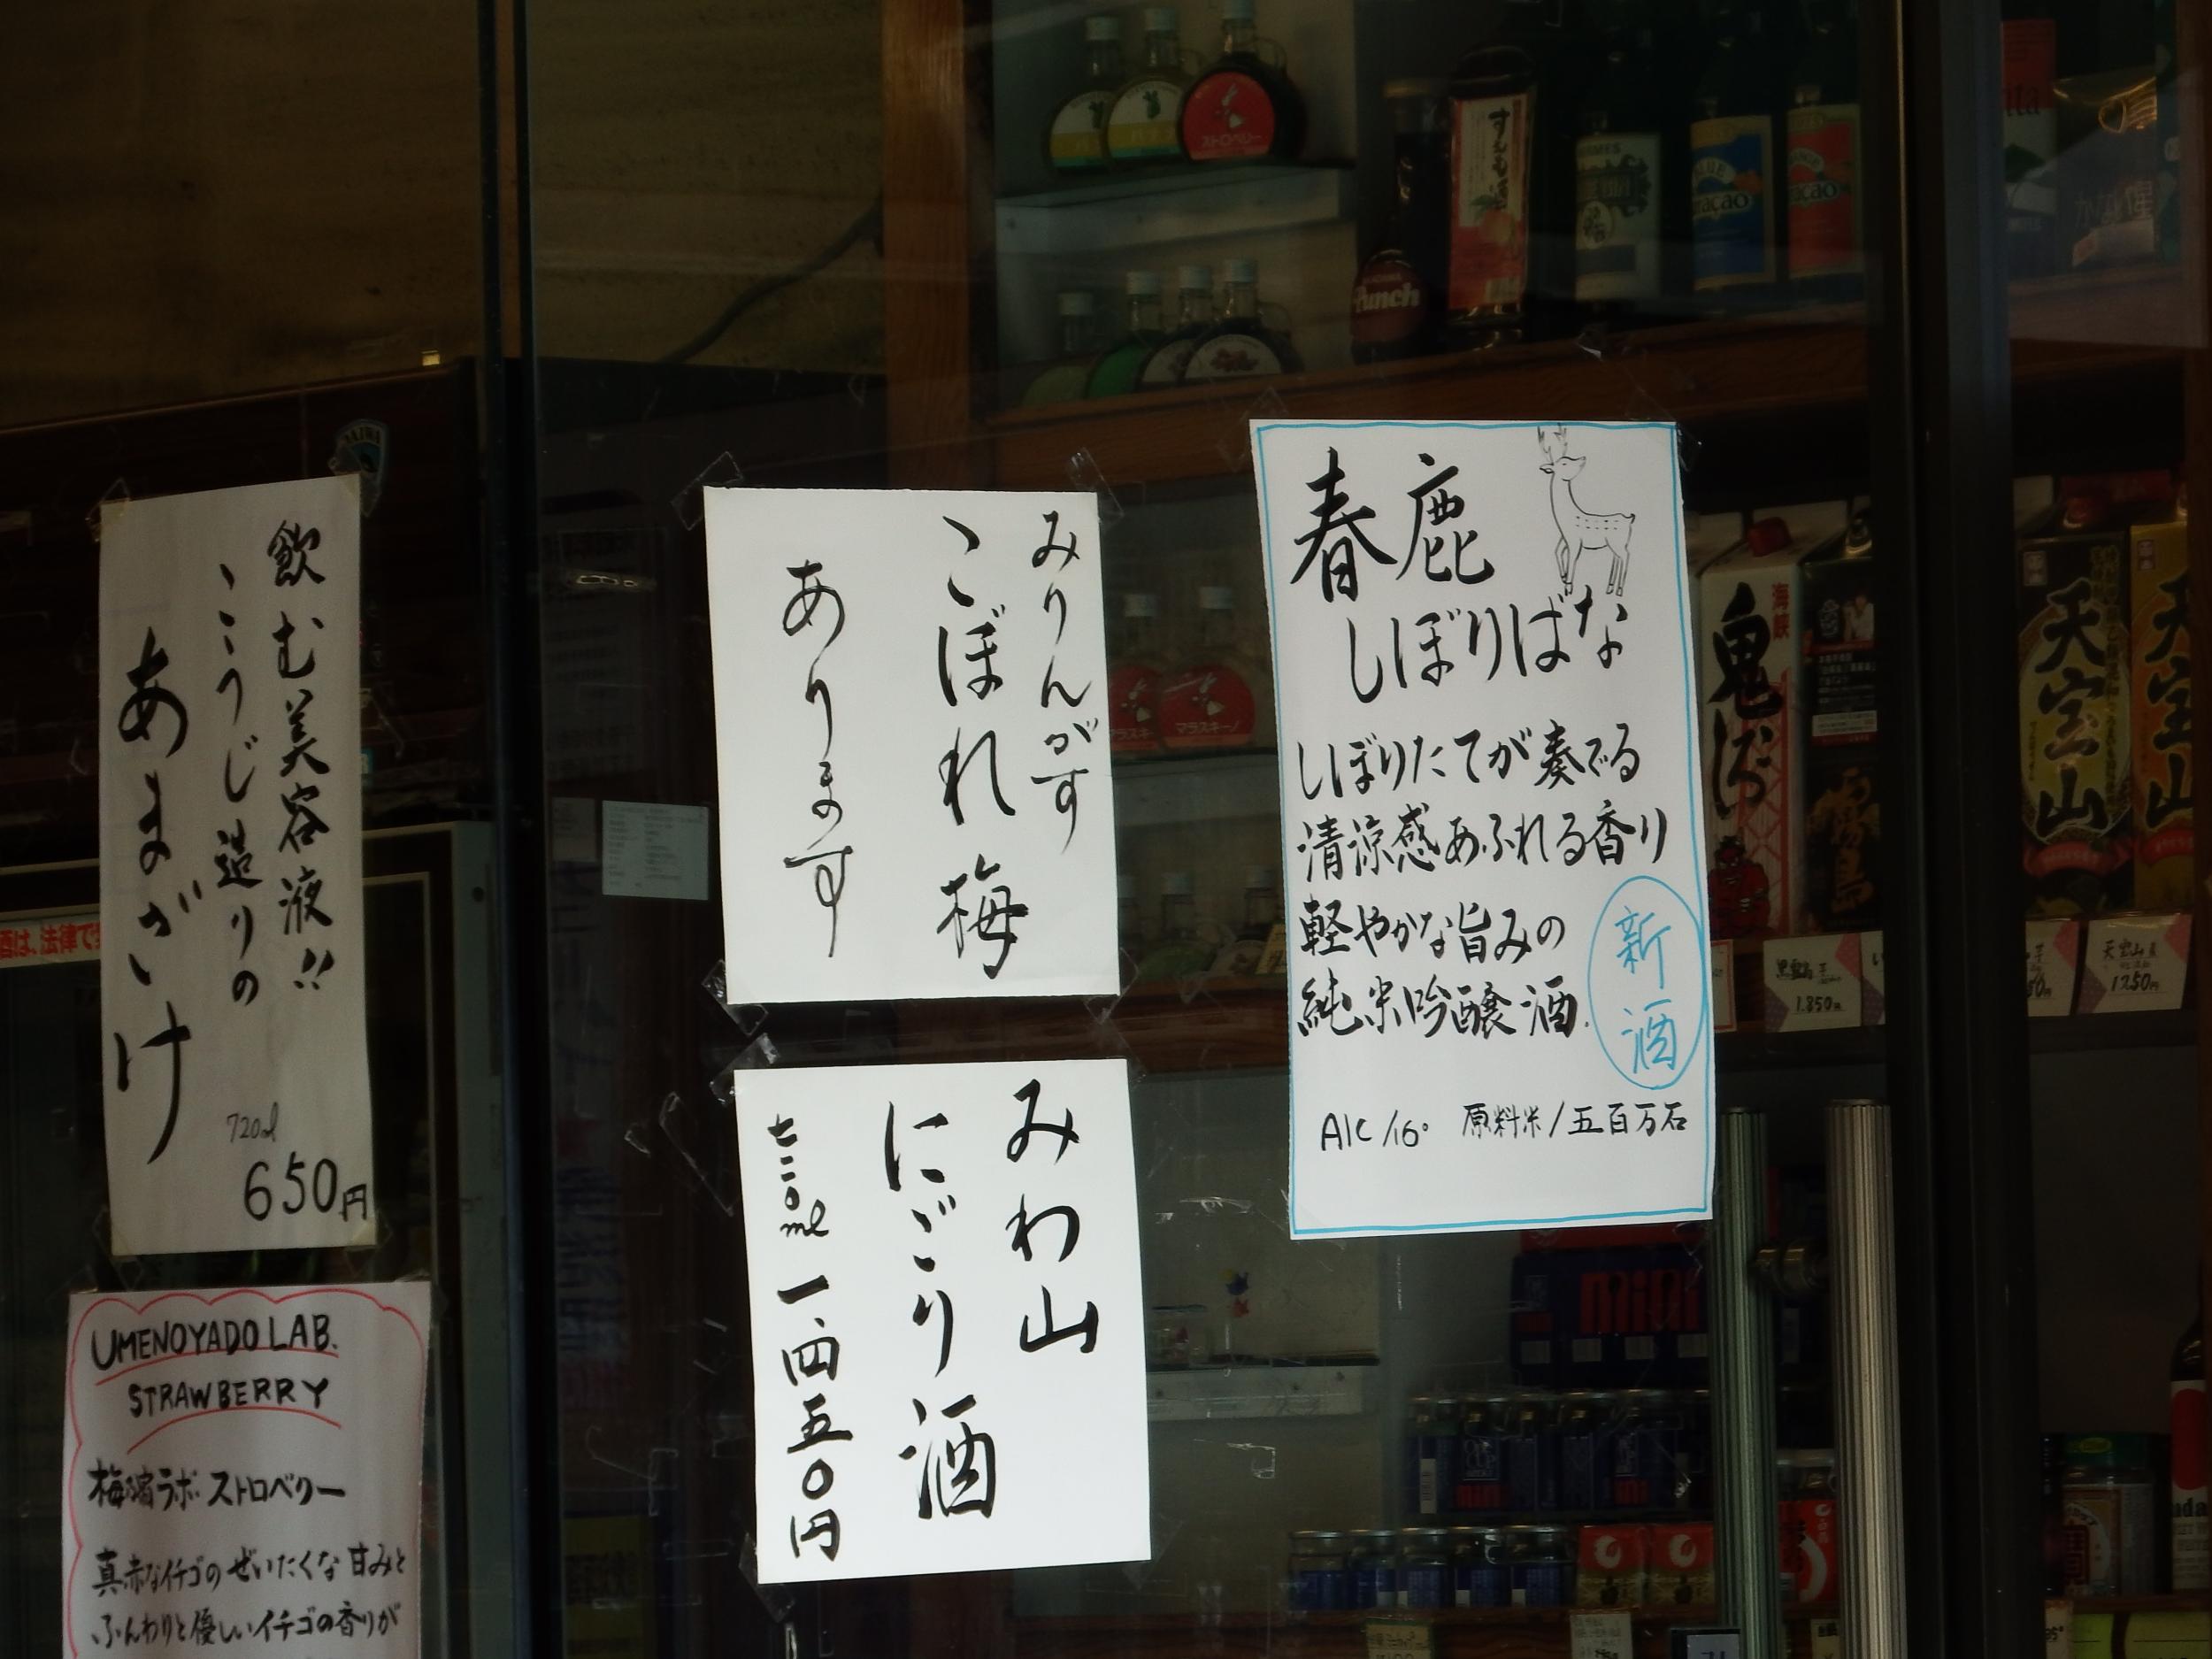 飲む美容液!!
こうじ造りの
あまざけ
720ml
650円
UMENOYADO LAB.
STRAWBERRY
梅宿ラボ ストロベリー
真赤なイチゴのぜいたくな甘みと
ふんわりと優しいイチゴの香りが
みりんがす
こぼれ梅
あります
みわ山
にごり酒
七二〇ml 一、四五〇円
春鹿
しぼりばな
しぼりたてが奏でる
清涼感あふれる香り
軽やかな旨みの
純米吟醸酒.
新酒
Alc/16° 原料米/五百万石
ストロベリー
Punch
すもも酒
マラスキーノ
海峡
鬼ころし
霧島
天宝山
天宝山
1.850円
1250円
酒は、法律で
mini